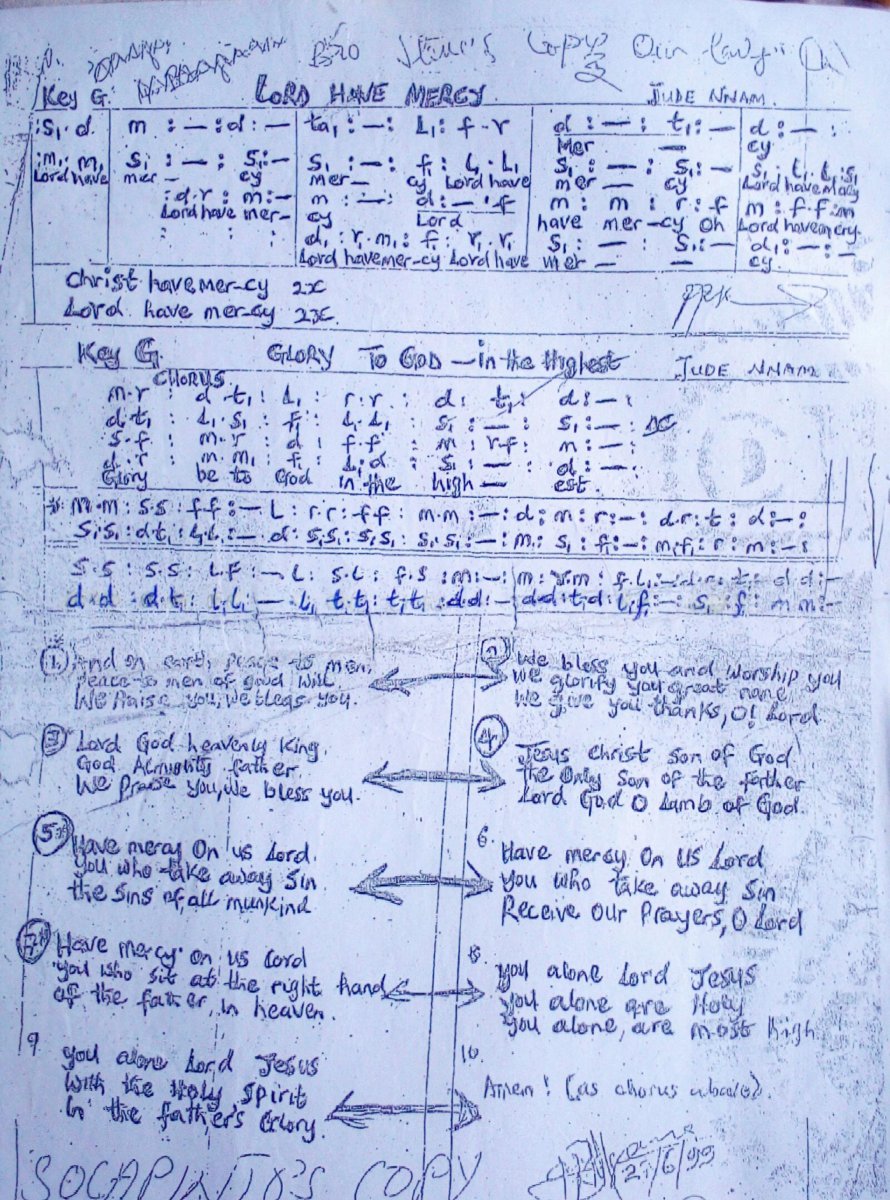 Copy Our Lady's
Key G. LORD HAVE MERCY JUDE NNAM.
:s₁.d. m :—:d:— ta₁:—: l₁:f.r d:—:t₁:— d:—:
Mer — cy
:m₁.m₁ s₁:—:s₁:— s₁:—:f₁:l₁.l₁ s₁:—:s₁:— s₁.t₁.l₁:s₁
Lord have mer — cy mer— cy Lord have mer — cy Lord have mercy
:d.r:m:— m:—: d:—'f m:m:r:f m:f.f:m
Lord have mer— cy Lord have mer-cy Oh Lord have mercy.
: : : d₁:r₁.m₁:f₁:r₁.r₁ s₁:—:s₁:— d₁:—:
Lord have mer-cy Lord have mer — — cy.
Christ have mer-cy 2x
Lord have mer-cy 2x
Key G. GLORY TO GOD —in the Highest JUDE NNAM.
CHORUS
m.r : d.t₁ : l₁ : r.r : d : t₁ : d:—:
d.t₁ : l₁.s₁ : f₁ : l₁.l₁ : s₁:— : s₁:—: DC
s.f : m.r : d : f.f : m : r.f : m:—:
d.r : m.m₁ : f₁ : l₁.d : s₁:— : d:—.
Glory be to God in the high— est.
m.m:s.s:f.f:—.l:r.r:f.f:m.m:—:d:m:r:—:d.r:t₁:d:—:
s₁.s₁:d.t₁:l₁.l₁:—.d:s₁.s₁:s₁.s₁:s₁.s₁:—:m₁:s₁:f₁:—:m₁.f₁:r:m:—:
s.s:s.s:l.f:—.l:s.l:f.s:m:—:
d.d:d.t₁:l₁.l₁:—.l₁:t₁.t₁:t₁.t₁:d.d:—
(1.) And on earth, peace to men,
peace to men of good will
We Praise you, we bless you.
2 We bless you and worship you
We glorify your great name
We give you thanks, O! Lord
3 Lord God heavenly King.
God Almighty father
We Praise you, we bless you.
4. Jesus Christ son of God
The Only Son of the father
Lord God O Lamb of God.
5 Have mercy On us Lord.
You who take away Sin
the Sins of, all munkind
6. Have mercy On us Lord
You who take away Sin
Receive Our Prayers, O Lord
7 Have mercy on us Lord
You who sit at the right hand
of the father, in heaven.
8 You alone Lord Jesus
You alone are Holy
You alone, are most high
9 You alone Lord Jesus
With the Holy Spirit
In the father's Glory.
10. Amen! (as chorus above).
SOCAPINTO'S COPY
2./6/99